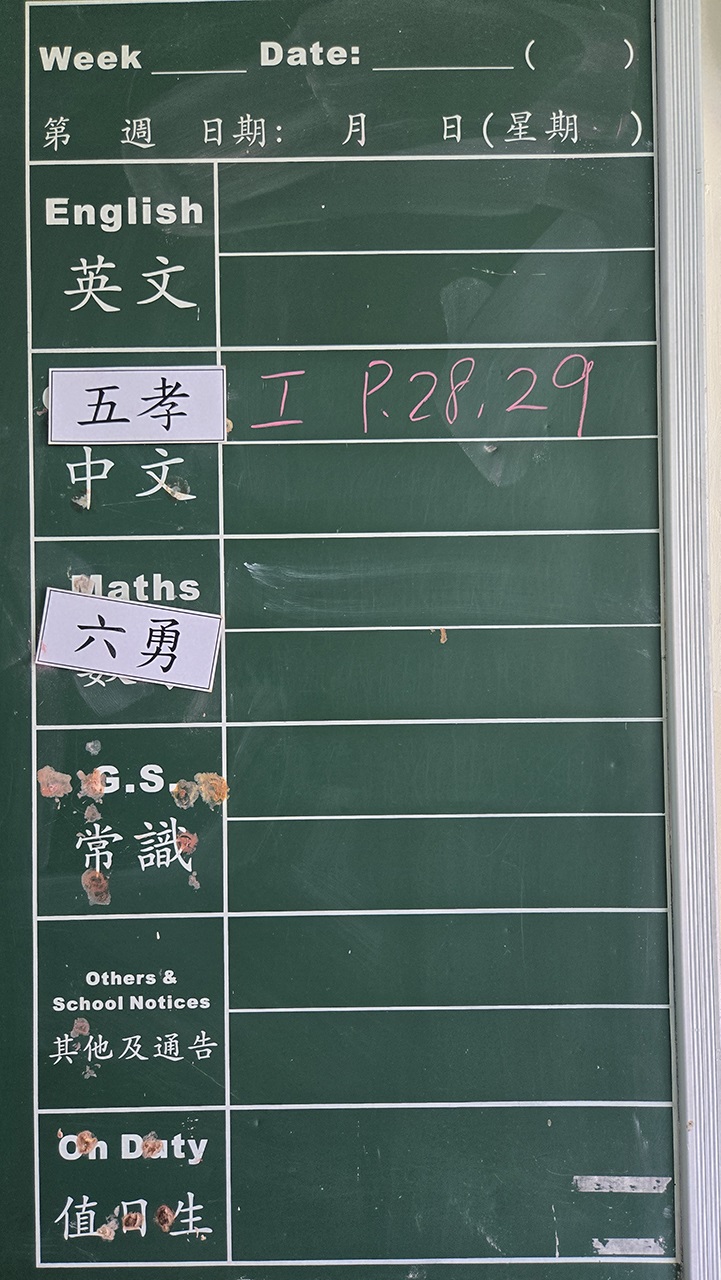 Week ______ Date: _________ ( )
第 週 日期: 月 日(星期 )
English
英文
五孝 工 P.28,29
中文
Maths
六勇
G.S.
常識
Others &
School Notices
其他及通告
On Duty
值日生